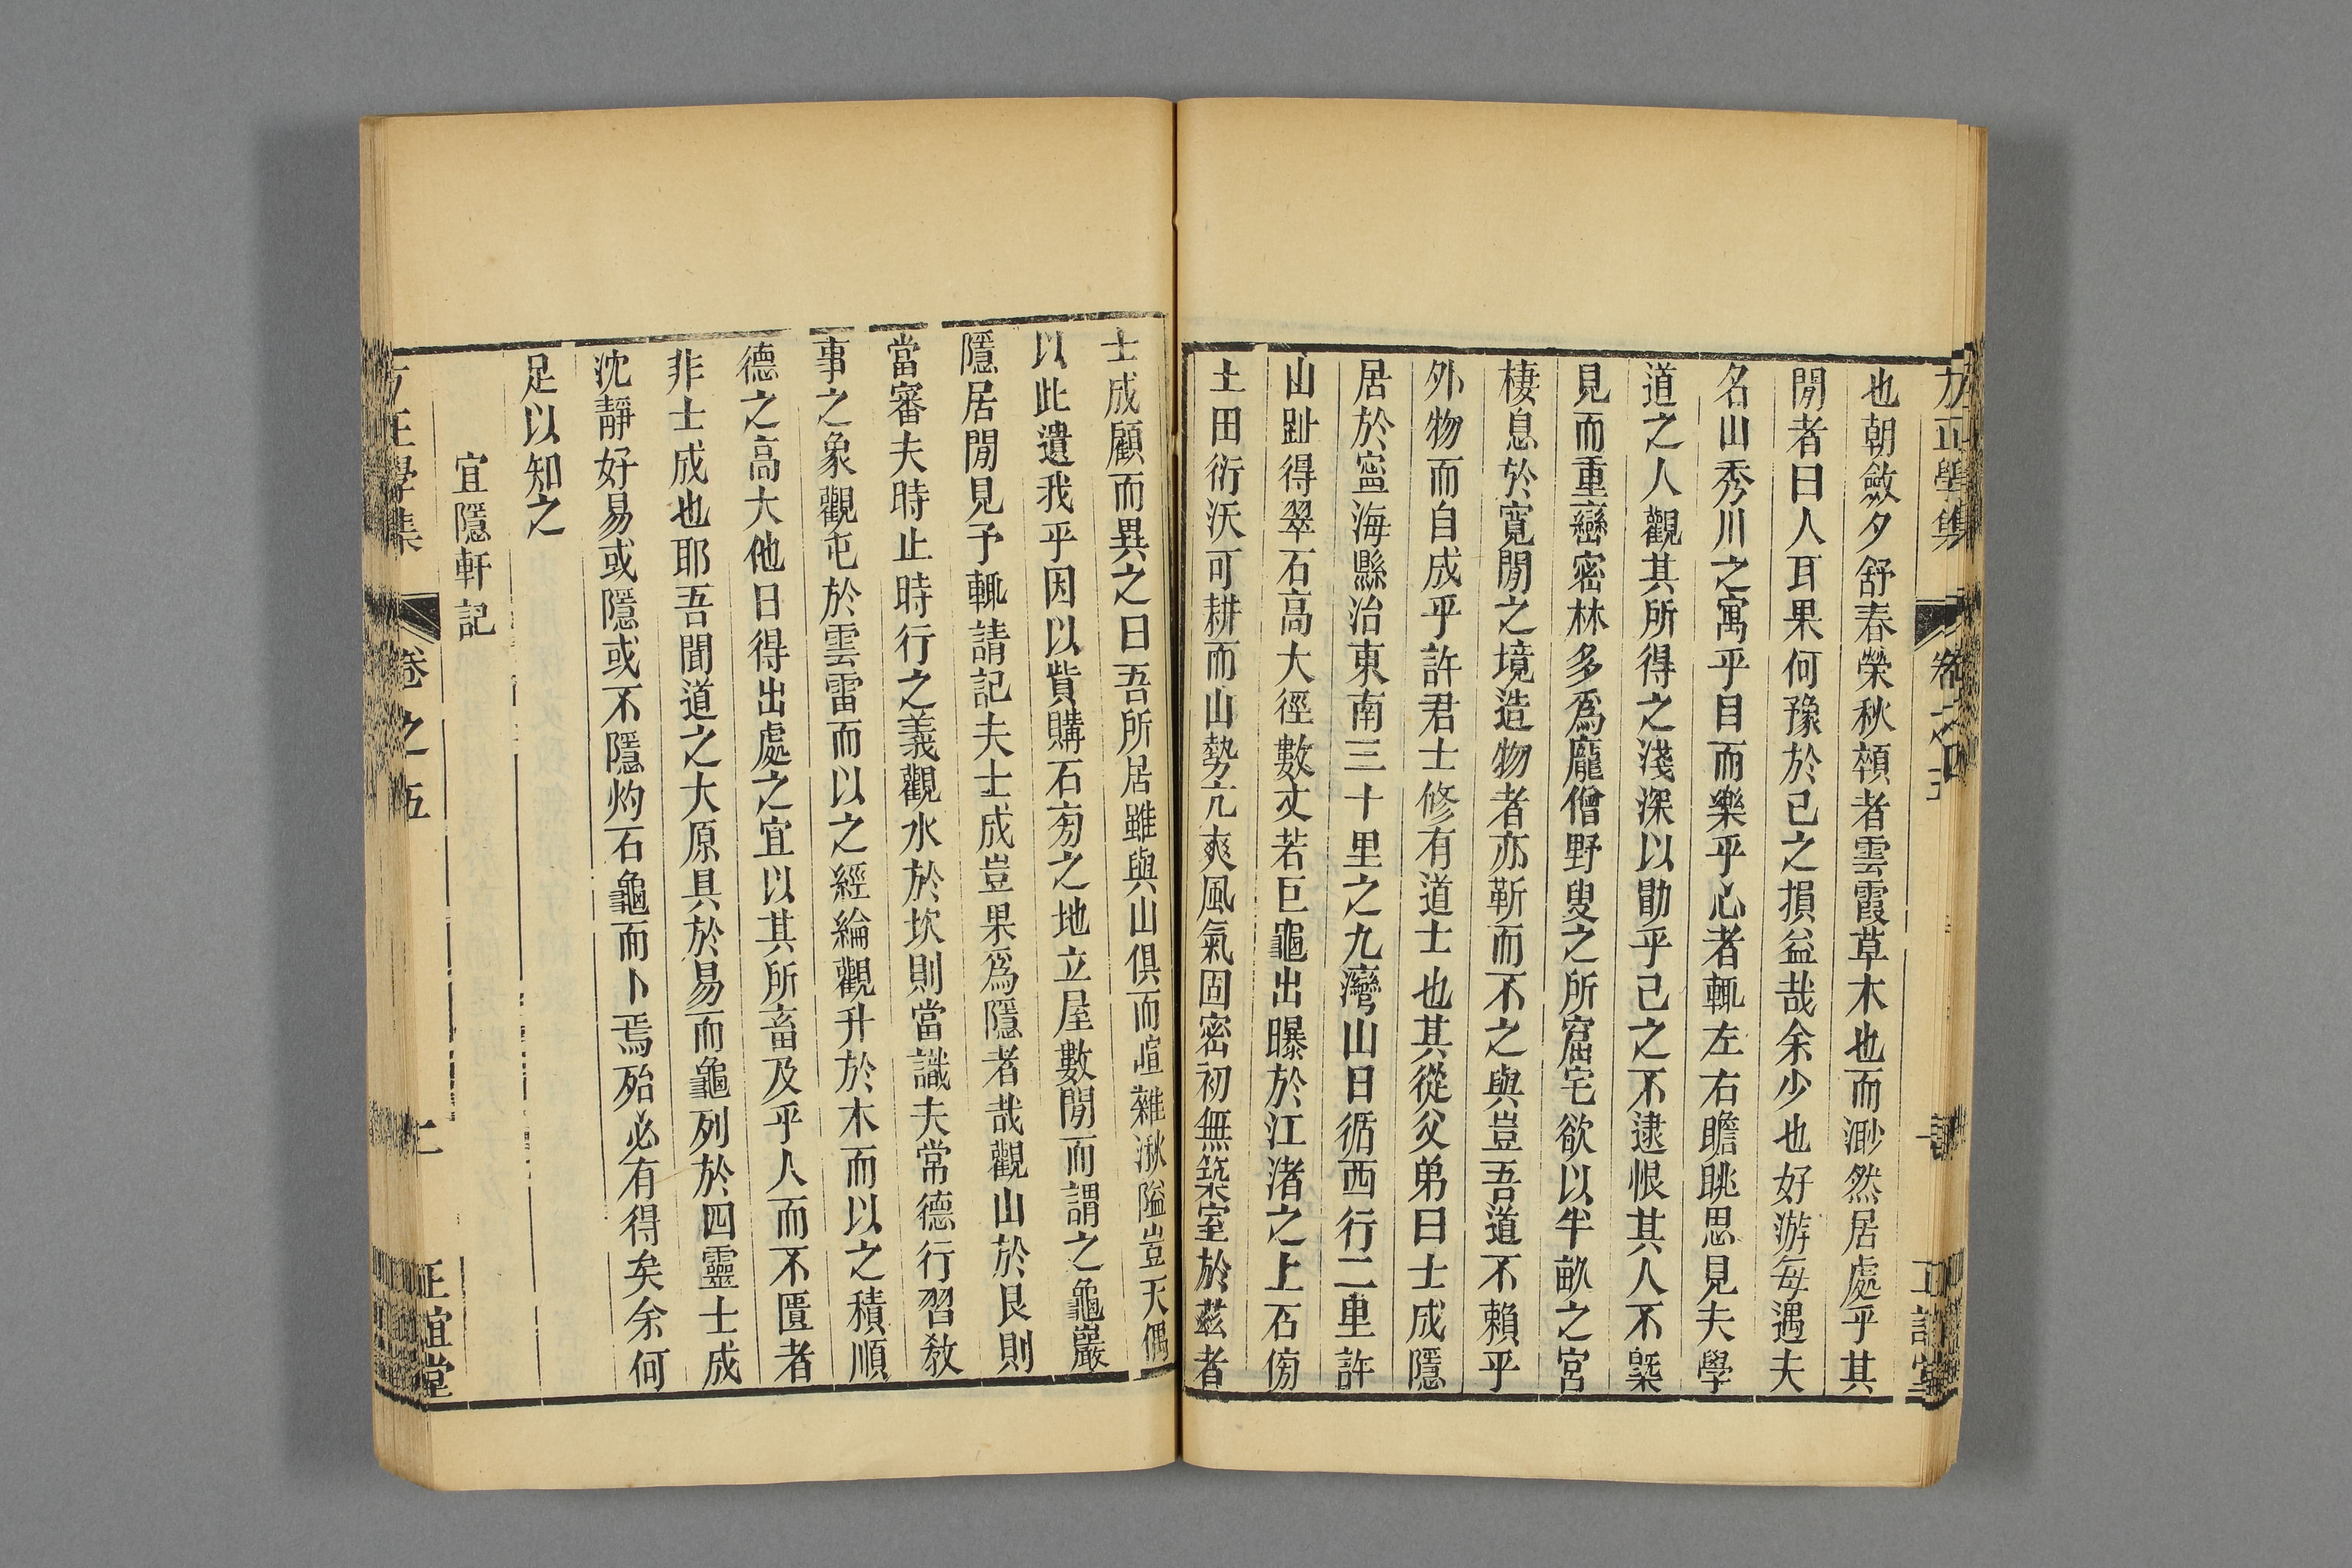 也朝斂夕舒春榮秋頯者雲霞草木也而渺然居處乎其
閒者曰人耳果何豫於己之損益哉余少也好游每遇夫
名山秀川之寓乎目而樂乎心者輒左右瞻眺思見夫學
道之人觀其所得之淺深以勖乎己之不逮恨其人不槩
見而重巒密林多爲龐僧野叟之所窟宅欲以半畝之宮
棲息於寬閒之境造物者亦靳而不之與豈吾道不賴乎
外物而自成乎許君士修有道士也其從父弟曰士成隱
居於寧海縣治東南三十里之九灣山日循西行二里許
山趾得翠石高大徑數丈若巨龜出曝於江渚之上石傍
土田衍沃可耕而山勢亢爽風氣固密初無築室於茲者
士成顧而異之曰吾所居雖與山俱而喧雜湫隘豈天偶
以此遺我乎因以貲購石旁之地立屋數閒而謂之龜巖
隱居閒見予輒請記夫士成豈果爲隱者哉觀山於艮則
當審夫時止時行之義觀水於坎則當識夫常德行習敎
事之象觀屯於雲雷而以之經綸觀升於木而以之積順
德之高大他日得出處之宜以其所畜及乎人而不匱者
非士成也耶吾聞道之大原具於易而龜列於四靈士成
沈靜好易或隱或不隱灼石龜而卜焉殆必有得矣余何
足以知之
宜隱軒記
方正學集
卷之五
二
正誼堂